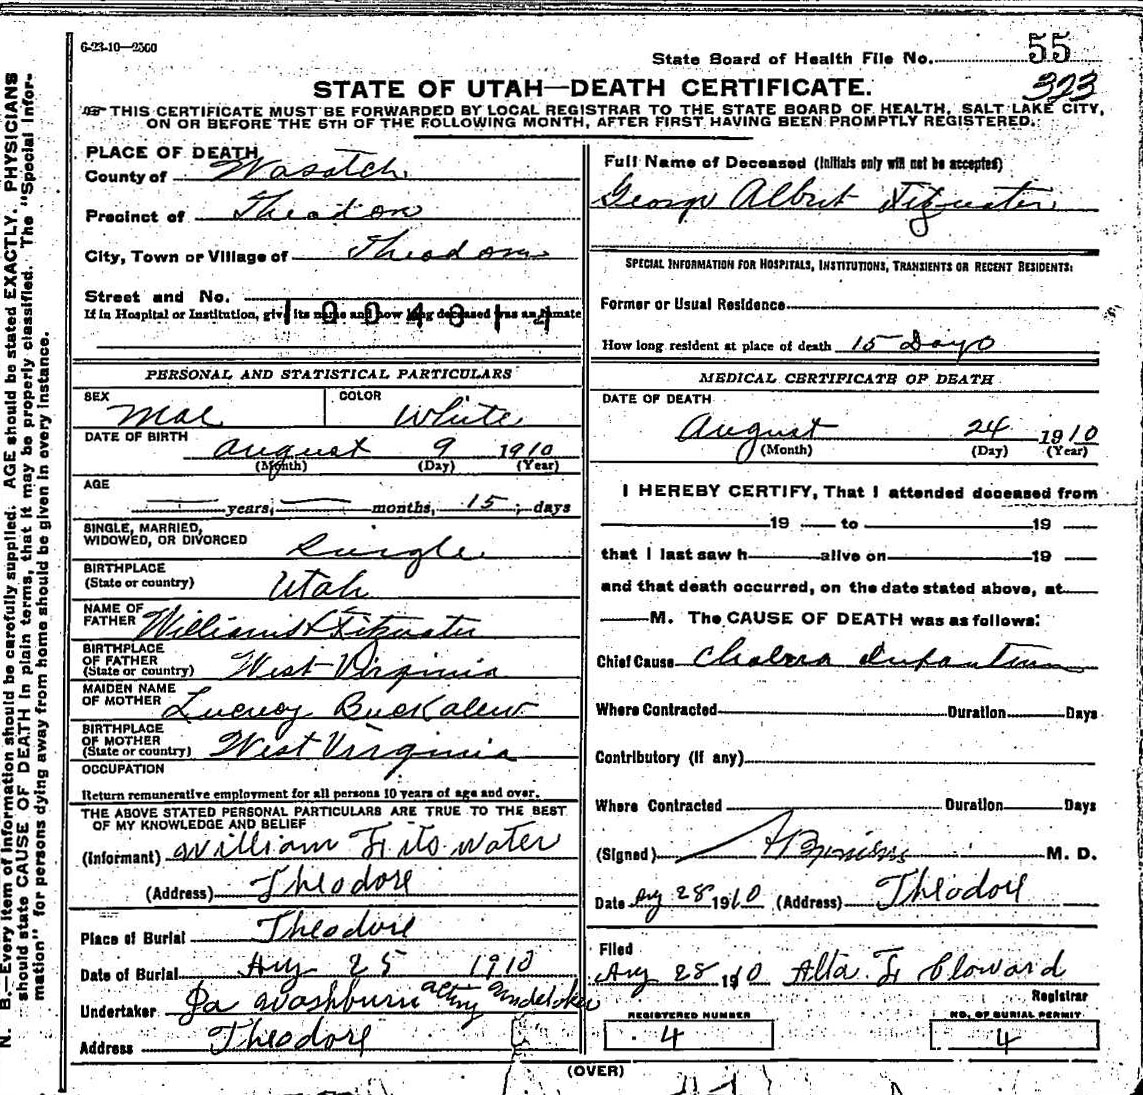 6-23-10—2500
State Board of Health File No. 55
323
STATE OF UTAH—DEATH CERTIFICATE.
THIS CERTIFICATE MUST BE FORWARDED BY LOCAL REGISTRAR TO THE STATE BOARD OF HEALTH, SALT LAKE CITY,
ON OR BEFORE THE 5TH OF THE FOLLOWING MONTH, AFTER FIRST HAVING BEEN PROMPTLY REGISTERED.
N. B.—Every item of information should be carefully supplied. AGE should be stated EXACTLY. PHYSICIANS
should state CAUSE OF DEATH in plain terms, that it may be properly classified. The "Special Infor-
mation" for persons dying away from home should be given in every instance.
PLACE OF DEATH
County of Wasatch
Precinct of
City, Town or Village of Theodore
Street and No.
If in Hospital or Institution, give its name and how long deceased was an inmate
PERSONAL AND STATISTICAL PARTICULARS
SEX COLOR
Mae White
DATE OF BIRTH
August 9 1910
(Month) (Day) (Year)
AGE
years, months, 15 days
SINGLE, MARRIED,
WIDOWED, OR DIVORCED Single
BIRTHPLACE
(State or country) Utah
NAME OF
FATHER Fitzwater
BIRTHPLACE
OF FATHER
(State or country) West Virginia
MAIDEN NAME
OF MOTHER Buckalew
BIRTHPLACE
OF MOTHER
(State or country) West Virginia
OCCUPATION
Return remunerative employment for all persons 10 years of age and over.
THE ABOVE STATED PERSONAL PARTICULARS ARE TRUE TO THE BEST
OF MY KNOWLEDGE AND BELIEF
(Informant) William Fitswater
(Address) Theodore
Place of Burial Theodore
Date of Burial Aug 25 1910
Undertaker Ja Washburn acting undetaker
Address Theodore
Full Name of Deceased (Initials only will not be accepted)
George Albert Fitzwater
SPECIAL INFORMATION FOR HOSPITALS, INSTITUTIONS, TRANSIENTS OR RECENT RESIDENTS:
Former or Usual Residence
How long resident at place of death 15 Days
MEDICAL CERTIFICATE OF DEATH
DATE OF DEATH
August 24 1910
(Month) (Day) (Year)
I HEREBY CERTIFY, That I attended deceased from
19 to 19
that I last saw h alive on 19
and that death occurred, on the date stated above, at
M. The CAUSE OF DEATH was as follows:
Chief Cause Cholera Infantum
Where Contracted Duration Days
Contributory (if any)
Where Contracted Duration Days
(Signed) M. D.
Date Aug 28 1910 (Address) Theodore
Filed
Aug 28 1910 Alta F Cloward
Registrar
REGISTERED NUMBER NO. OF BURIAL PERMIT
4 4
(OVER)